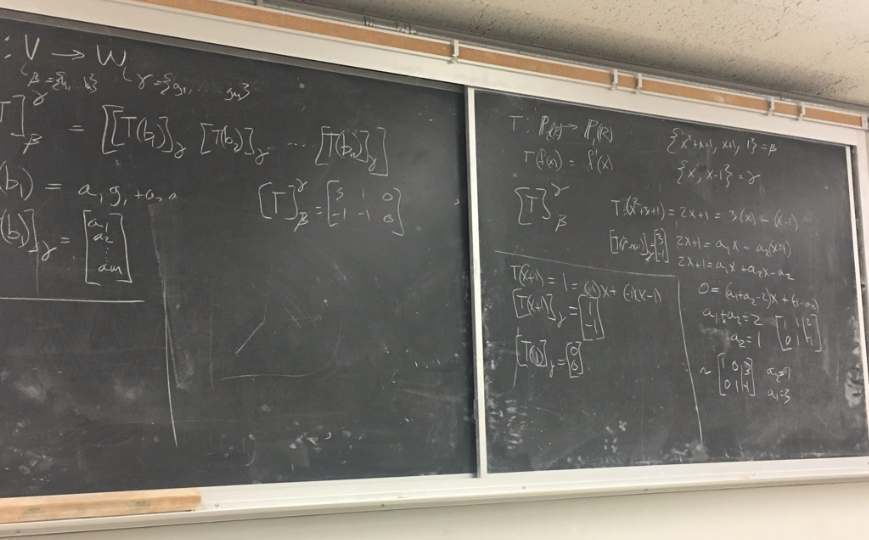 : V → W
β = {b₁, b} γ = {g₁, gₘ}
T]_β^γ = [[T(b₁)]_γ [T(b₂)]_γ ... [T(bₙ)]_γ]
(b₁) = a₁g₁ + a₂
(b₁)]_γ = [a₁ a₂ ⋮ aₘ]
[T]_β^γ = [3 1 0; -1 -1 0]
T: P₂(R) → P₁(R)
T(f(x)) = f'(x)
{x²+x+1, x+1, 1} = β
{x, x-1} = γ
[T]_β^γ
T(x²+x+1) = 2x+1 = 3(x) - (x-1)
2x+1 = a₁x - a₂(x-1)
2x+1 = a₁x + a₂x - a₂
0 = (a₁+a₂-2)x +
a₁+a₂ = 2
a₂ = 1
~ [1 0 3; 0 1 -1]
a₁ = 3
T(x+1) = 1 = (1)x + (-1)(x-1)
[T(x+1)]_γ = [1 -1]
[T(1)]_γ = [0 0]